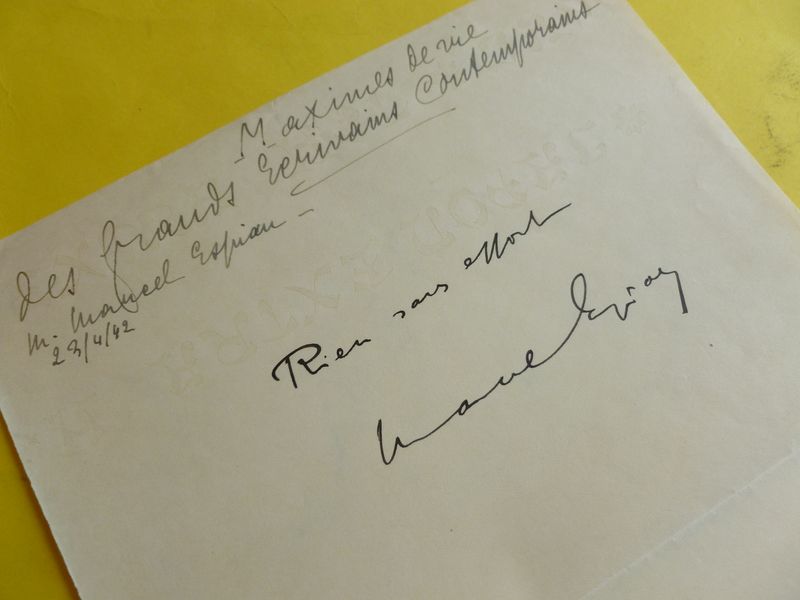 Maximes de vie
des Grands Ecrivains Contemporains
M. Marcel Espiau -
23/4/42
Rien sans effort
Marcel Espiau